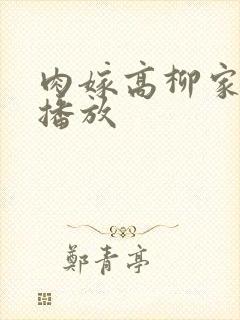 肉嫁高柳家
播放
鄭青亭